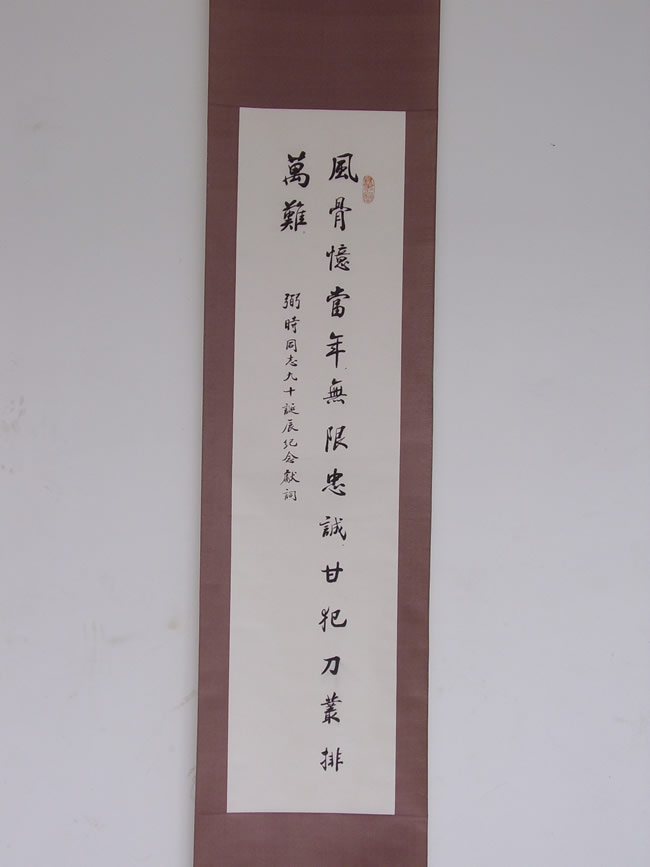 風骨憶當年無限忠誠甘犯刀叢排
萬難
弼時同志九十誕辰紀念獻詞